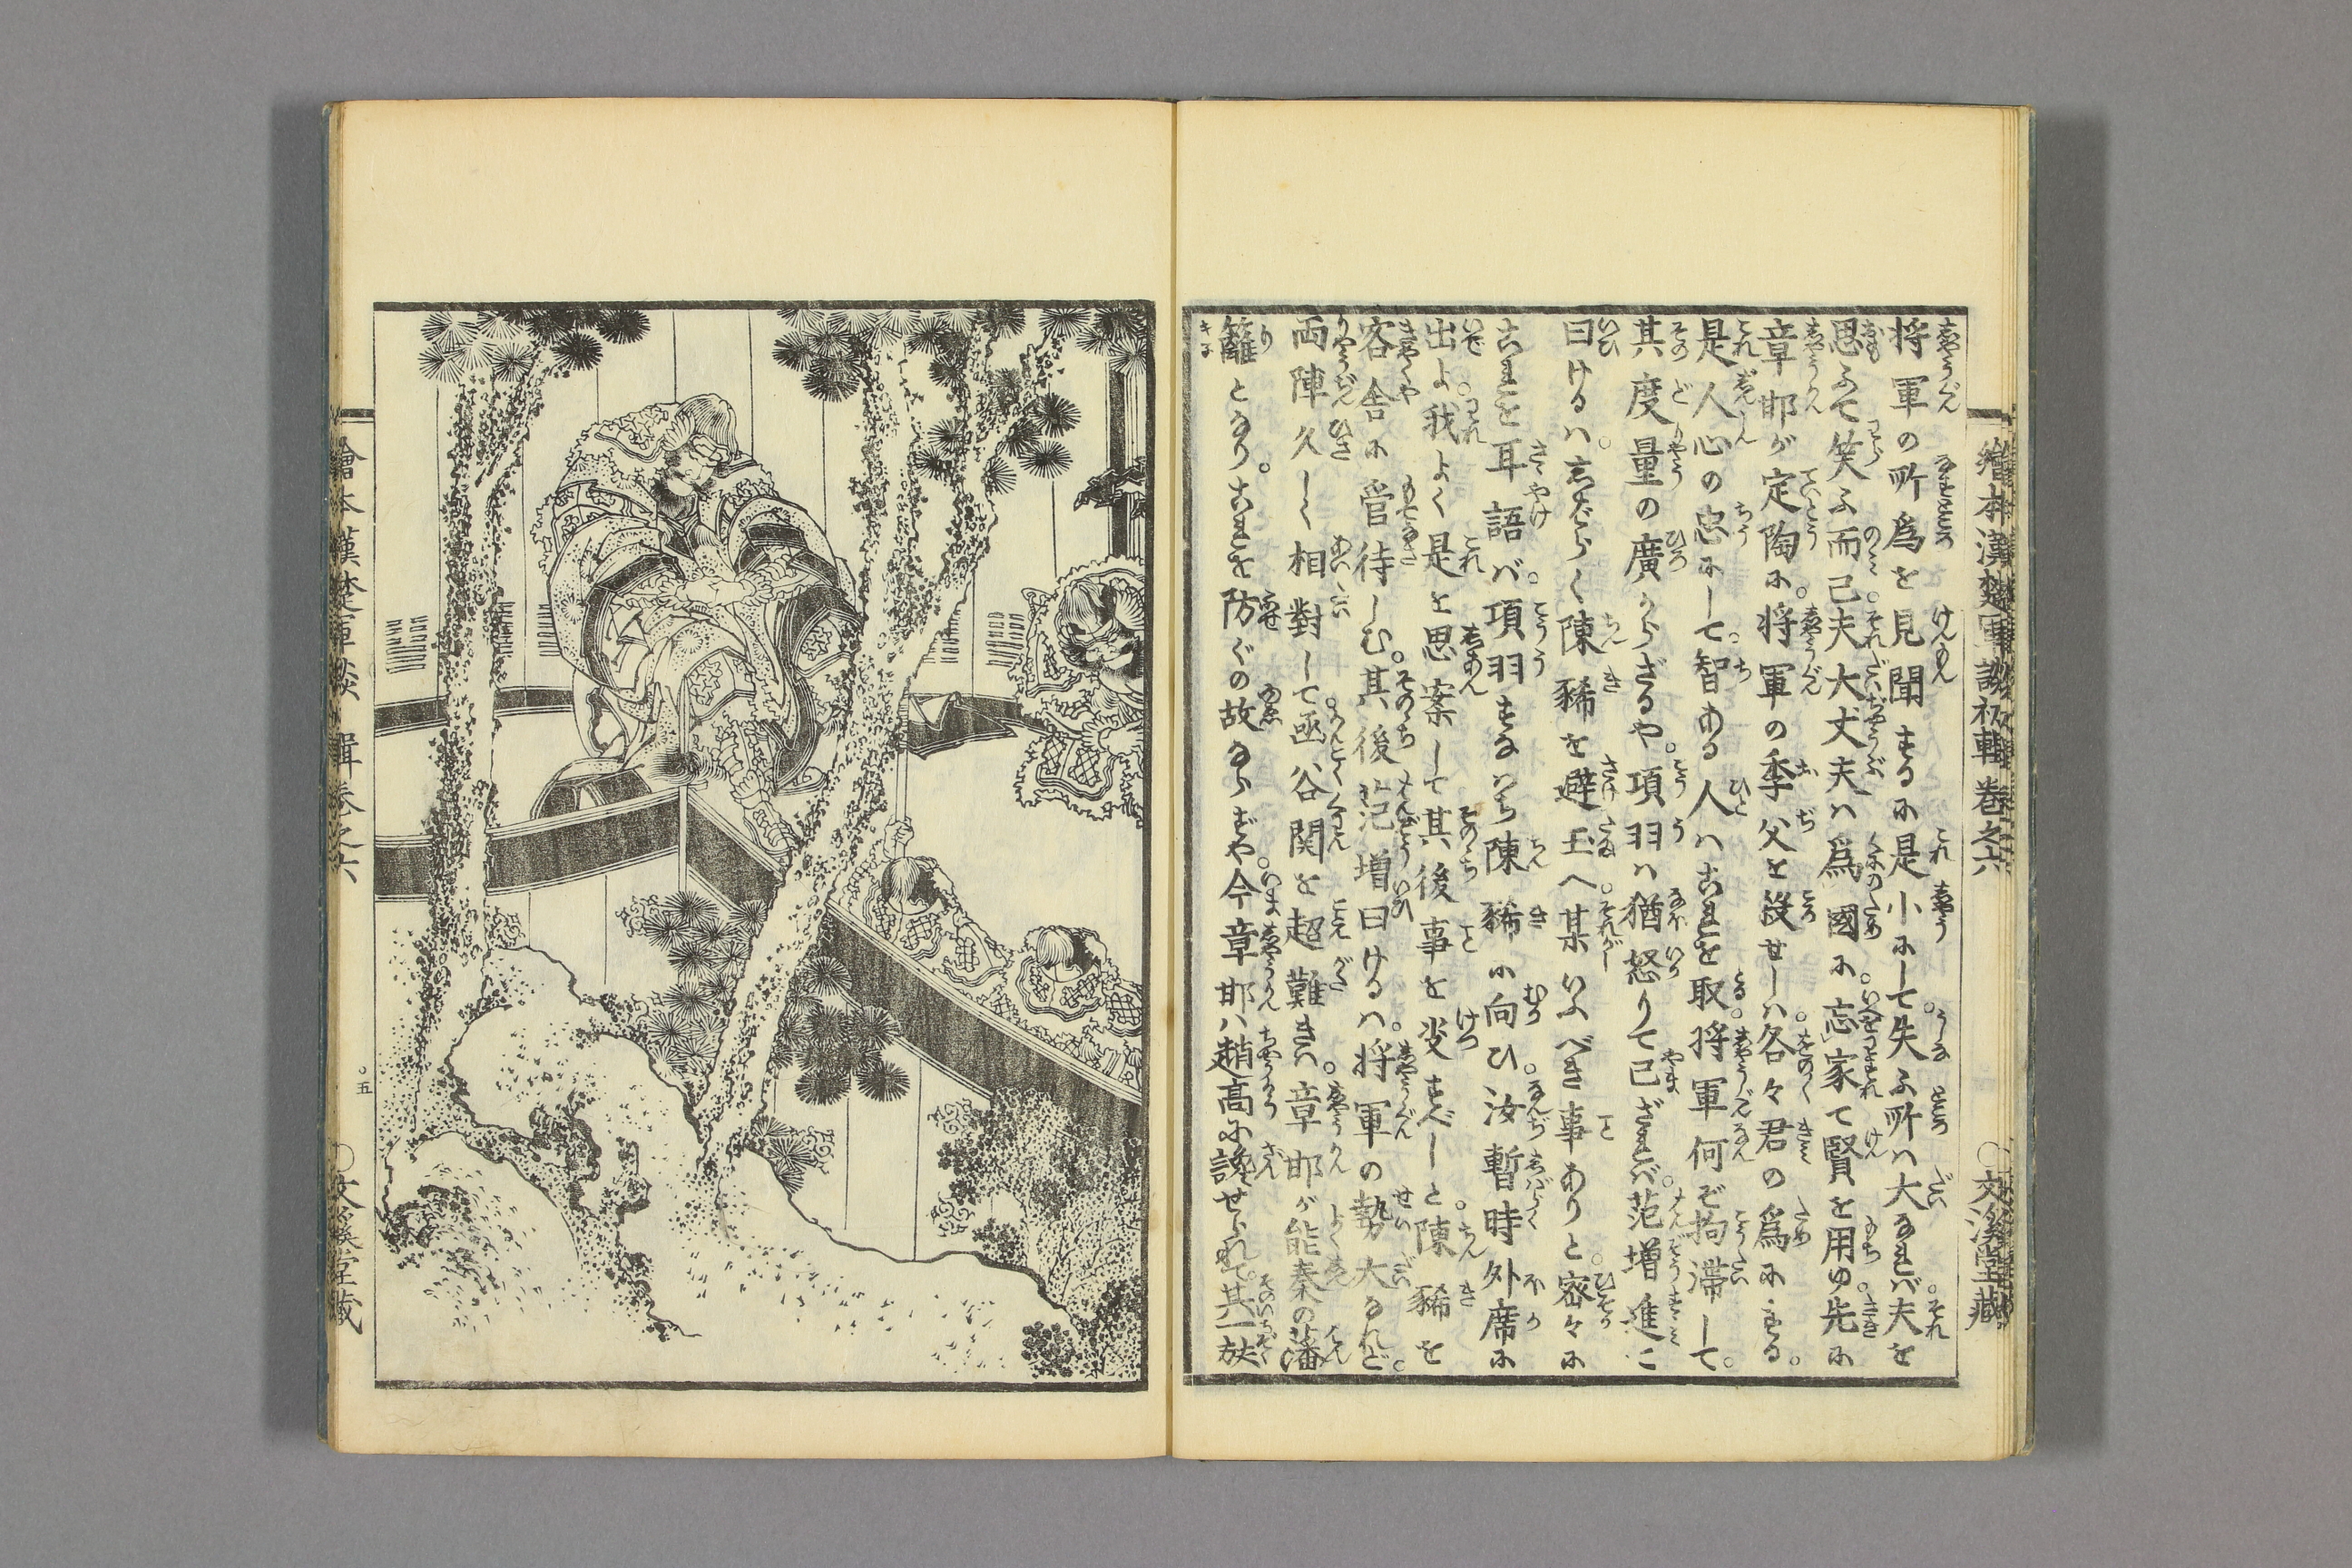 繪本漢楚軍談初輯卷之六
〇文溪堂藏
将軍の所爲を見聞するに是小にして。失ふ所ハ大なれバ。夫を
思ふて笑ふ而已。夫大丈夫ハ爲國に。忘家て賢を用ゆ。先に
章邯が定陶に。将軍の季父を殺せしハ。各々君の爲にする。
是人心の忠にして。智ある人ハこれを取。将軍何ぞ拘滞して。
其度量の廣からざるや。項羽ハ猶怒りて已ざれバ。范増進こ
曰けるハ。しばらく陳豨を避玉へ。某いふべき事ありと。密々に
これを耳語バ。項羽すなハち陳豨に向ひ。汝暫時外席に
出よ。我よく是を思案して其後事を决すべしと。陳豨を
客舎に管待しむ。其後范増曰けるハ。将軍の勢大なれど。
両陣久しく相對して。凾谷関を超難きハ。章邯が能秦の藩
籬となり。これを防ぐの故ならずや。今章邯ハ趙高に讒せられて。其一族
繪本漢楚軍談 輯卷之六
〇五
〇文溪堂藏